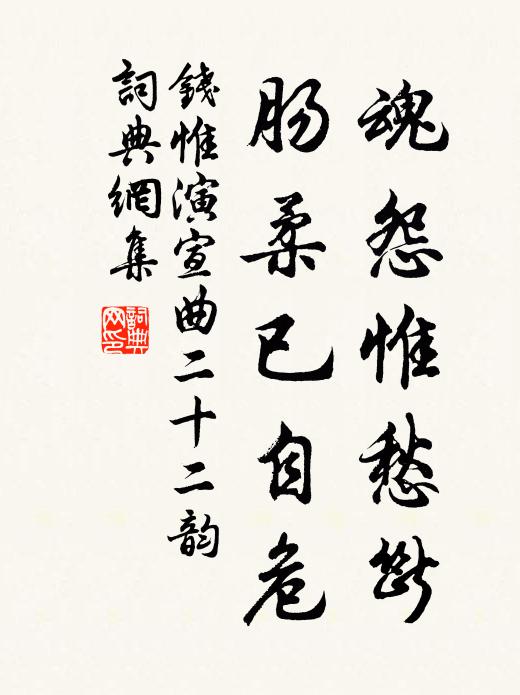 魂怨惟愁断
肠柔已自危
錢惟演宣曲二十二韵
詞典網集
詞典网印